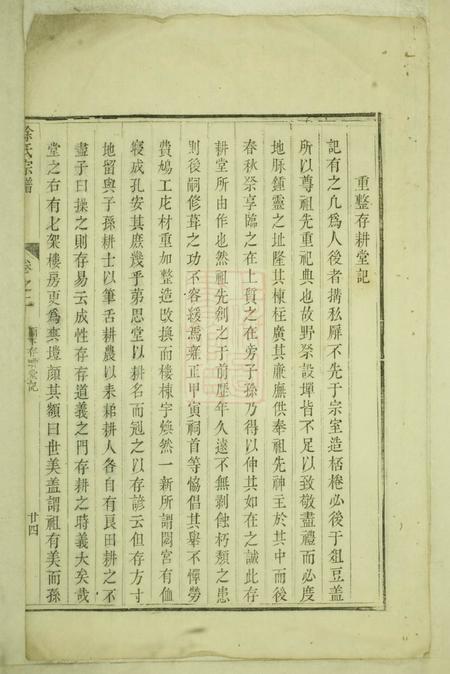 重整存耕堂記
記有之凡爲人後者搆厥屏不先于宗室造栝棬必後于俎豆盖
所以尊祖先重祀典也故野祭設墠皆不足以致敬盡禮而必度
地脉鍾靈之址隆其棟桓廣其亷廡供奉祖先神主於其中而後
春秋祭享臨之在上質之在旁子孫乃得以伸其如在之誠此存
耕堂所由作也然祖先創之于前歷年久遠不無剥蝕朽頹之患
則後嗣修葺之功不容緩焉雍正甲寅祠首等恊倡其舉不憚勞
費鳩工庀材重如整造改換而樓棟宇煥然一新所謂閟宫有侐
寢成孔安其庶幾乎第思堂以耕名而冠之以存諺云但存方寸
地留與子孫耕士以筆舌耕農以耒耜耕人各自有良田耕之不
盡子曰操之則存易云成性存存道義之門存耕之時義大矣哉
堂之右有七架樓房更爲爽塏顏其額曰世美盖謂祖有美而孫
徐氏宗譜
卷之二
存耕堂記
廿四